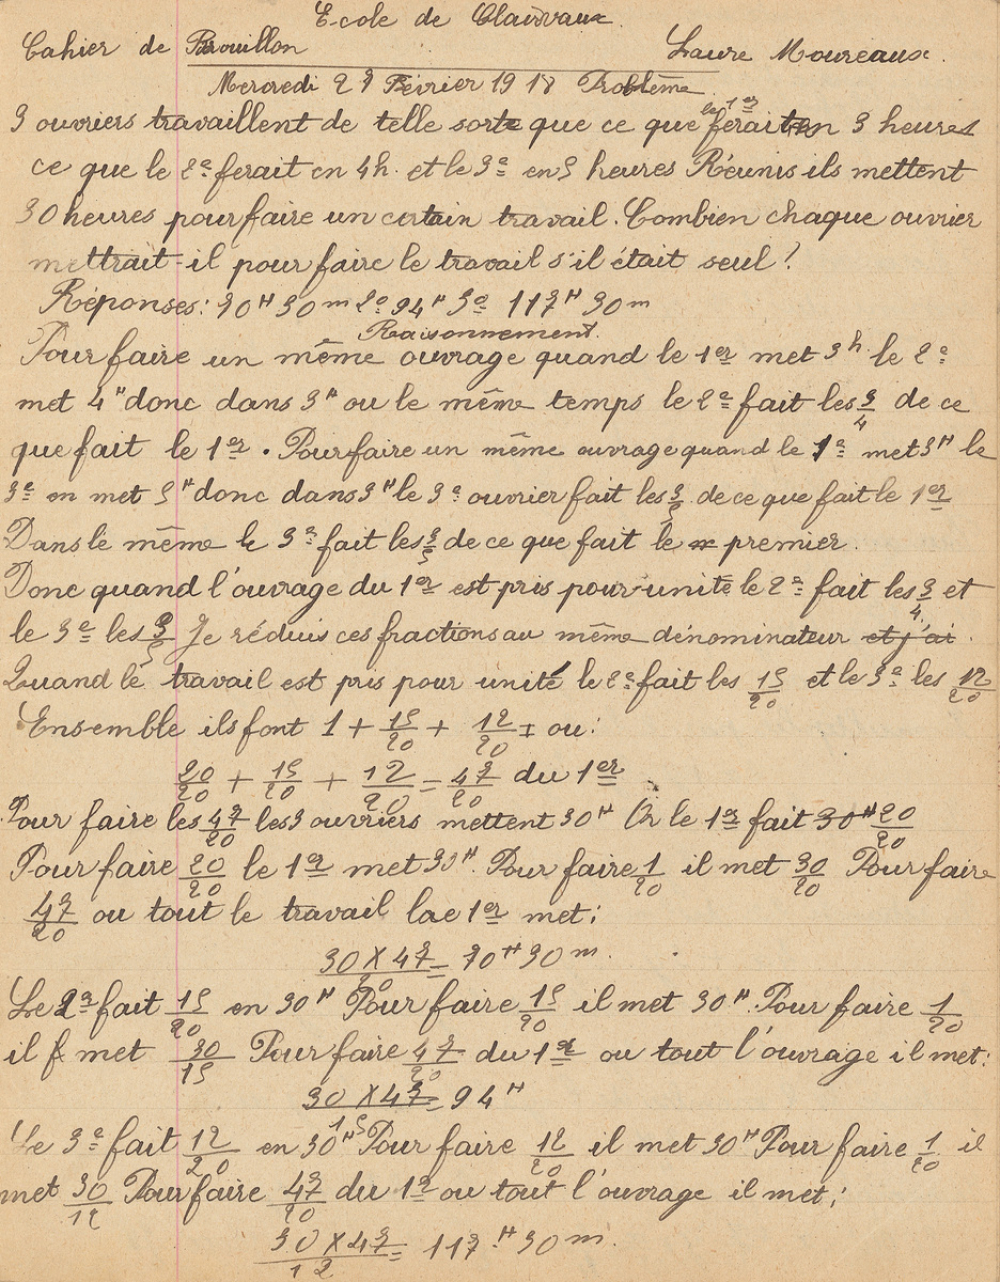 Ecole de Clairvaux.
Cahier de Brouillon Laure Moureaux.
Mercredi 27 Février 1918 Problème
3 ouvriers travaillent de telle sorte que ce que le 1er ferait en 3 heures
ce que le 2e ferait en 4h. et le 3e en 5 heures Réunis ils mettent
30 heures pour faire un certain travail. Combien chaque ouvrier
mettrait-il pour faire le travail s'il était seul ?
Réponses: 70H 30m 2e 94H 3e 117H 30m
Raisonnement.
Pour faire un même ouvrage quand le 1er met 3h. le 2e
met 4H donc dans 3H ou le même temps le 2e fait les 3/4 de ce
que fait le 1er. Pour faire un même ouvrage quand le 1e met 3H le
3e en met 5H donc dans 3H le 3e ouvrier fait les 3/5 de ce que fait le 1er
Dans le même le 3e fait les 3/5 de ce que fait le premier.
Donc quand l'ouvrage du 1er est pris pour unité le 2e fait les 3/4 et
le 3e les 3/5 Je réduis ces fractions au même dénominateur et j'ai.
Quand le travail est pris pour unité le 2e fait les 15/20 et le 3e les 12/20
Ensemble ils font 1 + 15/20 + 12/20 = ou:
20/20 + 15/20 + 12/20 = 47/20 du 1er.
Pour faire les 47/20 les 3 ouvriers mettent 30H Or le 1er fait 30H 20/20
Pour faire 20/20 le 1er met 30H. Pour faire 1/20 il met 30/20 Pour faire
47/20 ou tout le travail lae 1er met:
30 X 47/20 = 70H 30m.
Le 2e fait 15/20 en 30H Pour faire 15/20 il met 30H. Pour faire 1/20
il f met 30/15 Pour faire 47/20 du 1er ou tout l'ouvrage il met:
30 X 47/15 = 94H
Le 3e fait 12/20 en 30H Pour faire 12/20 il met 30H Pour faire 1/20 il
met 30/12 Pour faire 47/20 du 1e ou tout l'ouvrage il met:
30 X 47/12 = 117H 30m.